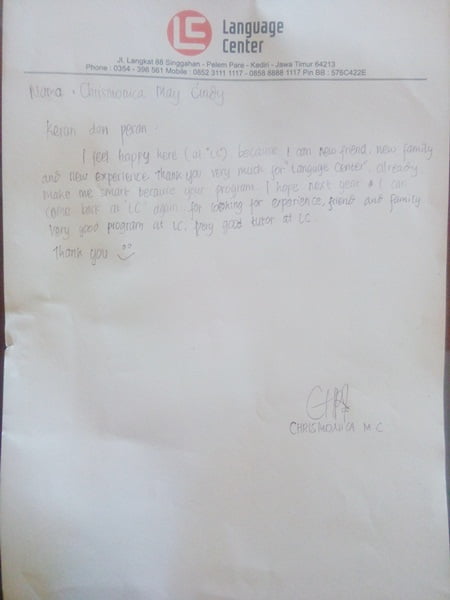 LC
Language
Center
Jl. Langkat 88 Singgahan - Pelem Pare - Kediri - Jawa Timur 64213
Phone : 0354 - 396 561 Mobile : 0852 3111 1117 - 0858 8888 1117 Pin BB : 576C422E
Nama : Chrismonica May Cindy
Kesan dan pesan :
I feel happy here (at "LC") because I can new friend, new family
and new experience. Thank you very much for "Language Center", already
make me smart because your program. I hope next year I can
come back at "LC" again for looking for experience, friend and family
Very good program at LC, very good tutor at LC.
Thank you
CHRISMONICA M.C